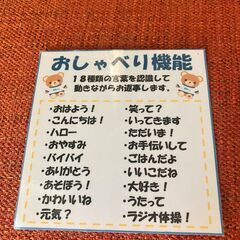 おしゃべり機能
18種類の言葉を認識して
動きながらお返事します。
・おはよう!
・こんにちは!
・ハロー
・おやすみ
・バイバイ
・ありがとう
・あそぼう!
・かわいいね
・元気?
・笑って?
・いってきます
・ただいま!
・お手伝いして
・ごはんだよ
・いいこだね
・大好き!
・うたって
・ラジオ体操!